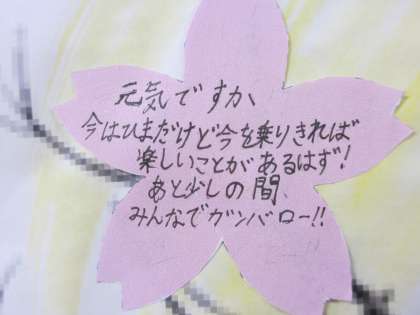 元気ですか、
今はひまだけど今を乗りきれば
楽しいことがあるはず!
あと少しの間、
みんなでガンバロー!!